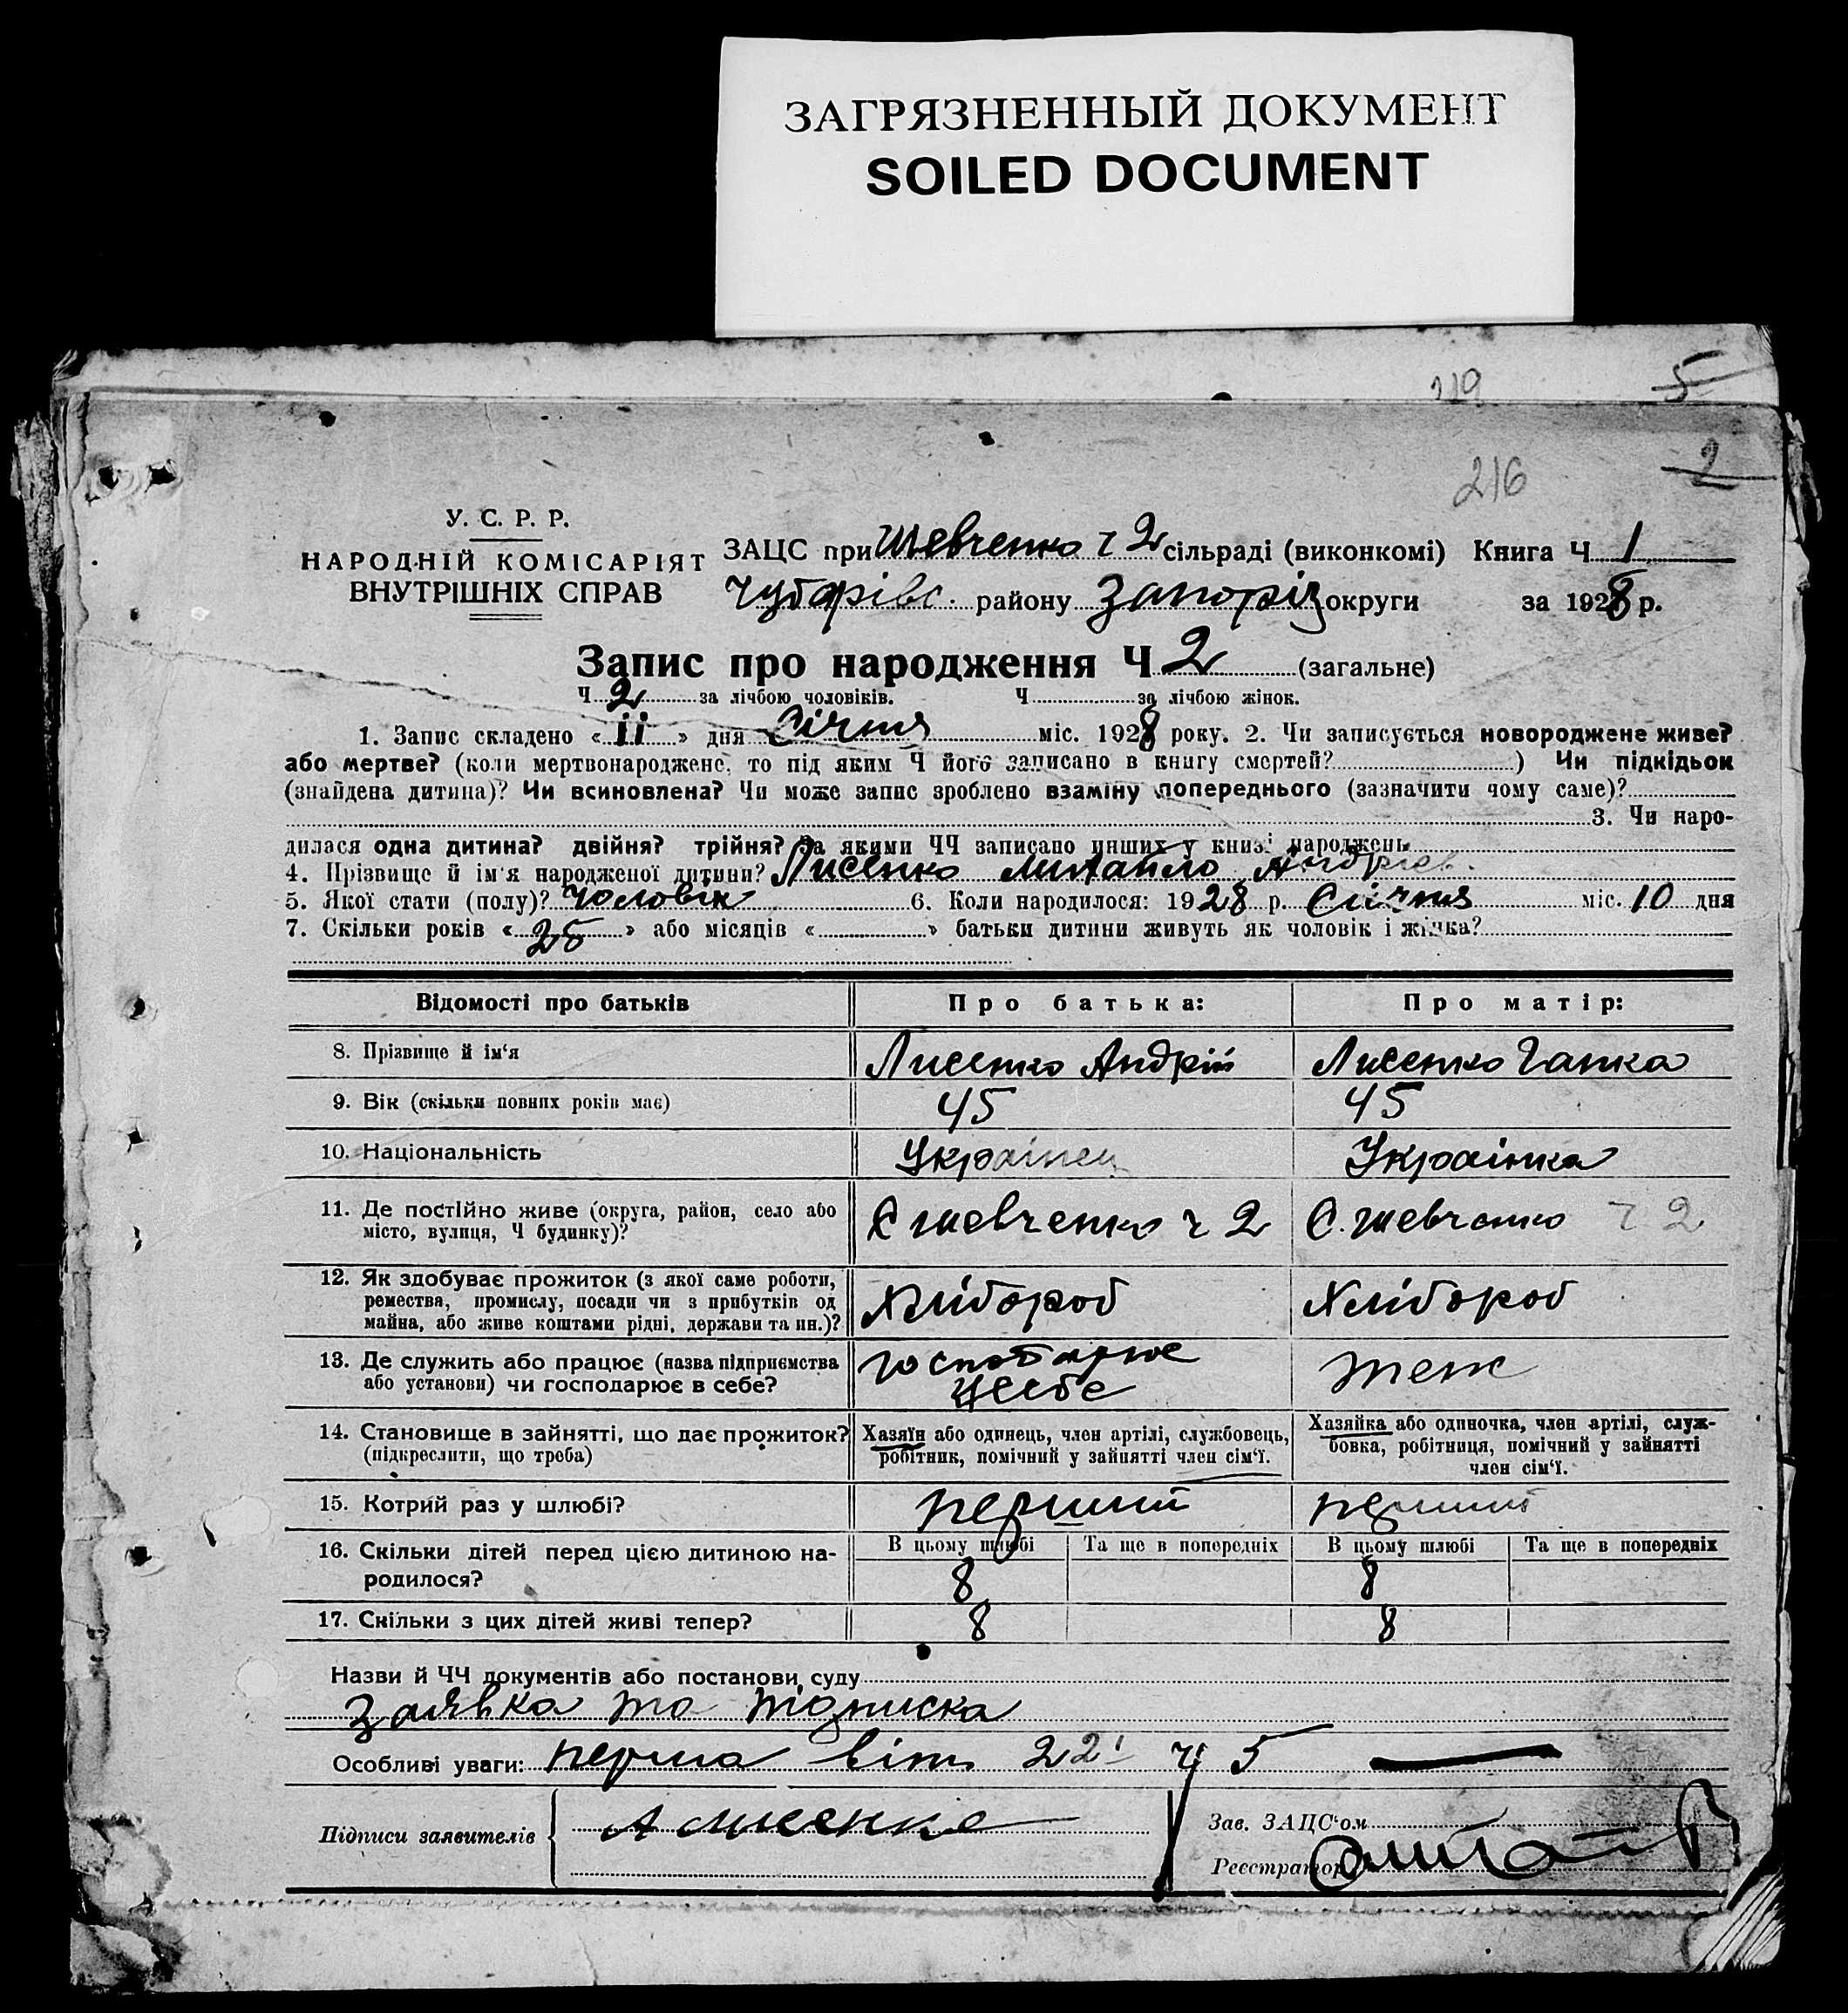 ЗАГРЯЗНЕННЫЙ ДОКУМЕНТ
SOILED DOCUMENT
219 5
216 2
У. С. Р. Р.
НАРОДНІЙ КОМІСАРІЯТ
ВНУТРІШНІХ СПРАВ
ЗАЦС при Шевченко ч 2 сільраді (виконкомі) Книга Ч 1
Чубарівс. району Запоріз округи за 1928 р.
Запис про народження Ч 2 (загальне)
Ч 2 за лічбою чоловіків. Ч за лічбою жінок.
1. Запис складено « 11 » дня Січня міс. 1928 року. 2. Чи записується новороджене живе?
або мертве? (коли мертвонароджене, то під яким Ч його записано в книгу смертей? ) Чи підкідьок
(знайдена дитина)? Чи всиновлена? Чи може запис зроблено взаміну попереднього (зазначити чому саме)?
3. Чи наро-
дилася одна дитина? двійня? трійня? За якими ЧЧ записано инших у книзі народжень
4. Прізвище й ім'я народженої дитини? Лисенко Михайло Андріев.
5. Якої стати (полу)? Чоловік 6. Коли народилося: 1928 р. Січня міс. 10 дня
7. Скільки років « 25 » або місяців « » батьки дитини живуть як чоловік і жінка?
Відомості про батьків Про батька: Про матір:
8. Прізвище й ім'я Лисенко Андрій Лисенко Гапка
9. Вік (скільки повних років має) 45 45
10. Національність Українец Українка
11. Де постійно живе (округа, район, село або
місто, вулиця, Ч будинку)? С Шевченко ч 2 С. Шевченко ч 2
12. Як здобуває прожиток (з якої саме роботи,
ремества, промислу, посади чи з прибутків од
майна, або живе коштами рідні, держави та ин.)? Хлібороб Хлібороб
13. Де служить або працює (назва підприємства
або установи) чи господарює в себе? Господарює
усебе теж
14. Становище в зайнятті, що дає прожиток?
(підкреслити, що треба)
Хазяїн або одинець, член артілі, службовець,
робітник, помічний у зайнятті член сім'ї.
Хазяйка або одиночка, член артілі, служ-
бовка, робітниця, помічний у зайнятті
член сім'ї.
15. Котрий раз у шлюбі? перший перший
16. Скільки дітей перед цією дитиною на-
родилося?
В цьому шлюбі Та ще в попередніх В цьому шлюбі Та ще в попередніх
8 8
17. Скільки з цих дітей живі тепер? 8 8
Назви й ЧЧ документів або постанови суду
заявка та підписка
Особливі уваги: перша 22 ч 5
Підписи заявителів А Лисенко
Зав. ЗАЦС'ом
Реєстратор